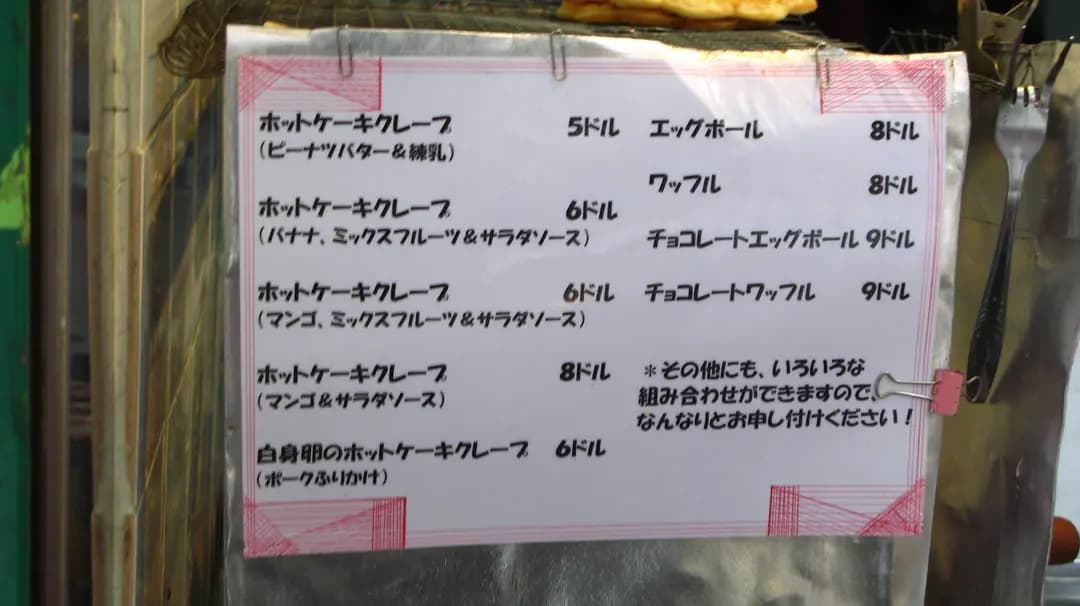 ホットケーキクレープ 5ドル
(ピーナツバター＆練乳)
ホットケーキクレープ 6ドル
(バナナ、ミックスフルーツ＆サラダソース)
ホットケーキクレープ 6ドル
(マンゴ、ミックスフルーツ＆サラダソース)
ホットケーキクレープ 8ドル
(マンゴ＆サラダソース)
白身卵のホットケーキクレープ 6ドル
(ポークふりかけ)
エッグボール 8ドル
ワッフル 8ドル
チョコレートエッグボール 9ドル
チョコレートワッフル 9ドル
＊その他にも、いろいろな
組み合わせができますので、
なんなりとお申し付けください！